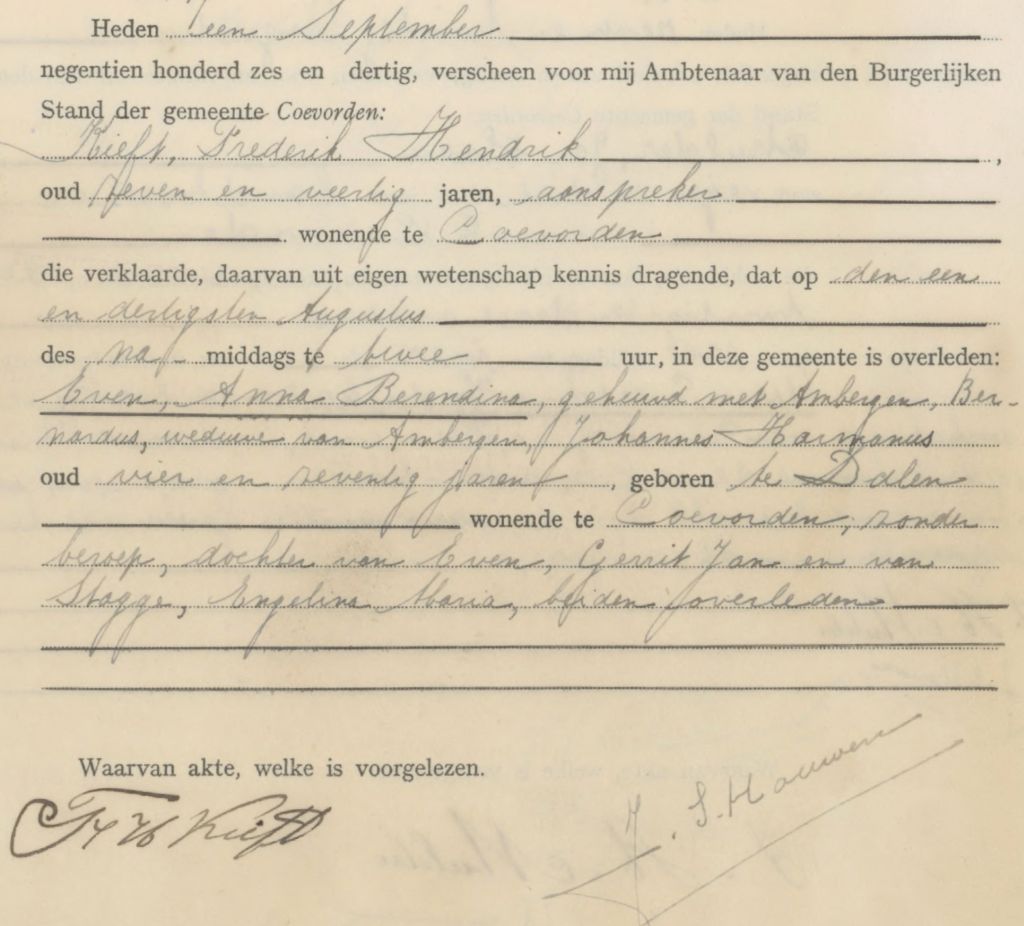 Heden een September
negentien honderd zes en dertig, verscheen voor mij Ambtenaar van den Burgerlijken
Stand der gemeente Coevorden:
Kieft, Frederik Hendrik ,
oud zeven en veertig jaren, aanspreker
wonende te Coevorden
die verklaarde, daarvan uit eigen wetenschap kennis dragende, dat op den een
en dertigsten Augustus
des na middags te twee uur, in deze gemeente is overleden:
Even, Anna Berendina, gehuwd met Ambergen, Ber-
nardus, weduwe van Ambergen, Johannes Harmanus
oud vier en zeventig jaren , geboren te Dalen
wonende te Coevorden, zonder
beroep, dochter van Even, Gerrit Jan en van
Stagge, Engelina Maria, beiden overleden
Waarvan akte, welke is voorgelezen.
Fr H Kieft
J. S. Houwen